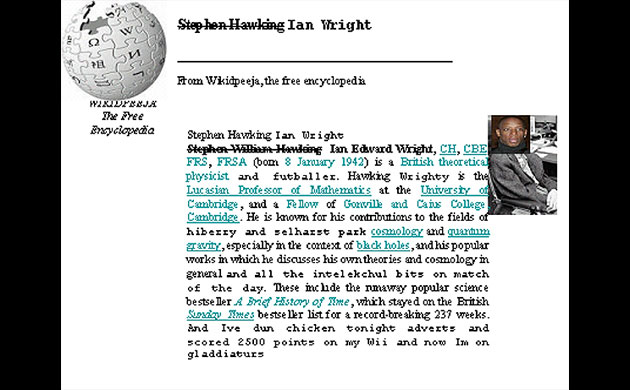 Stephen Hawking Ian Wright
From Wikidpeeja, the free encyclopedia
W
WIKIDPEEJA
The Free
Encyclopedia
Stephen Hawking Ian Wright
Stephen William Hawking Ian Edward Wright, CH, CBE
FRS, FRSA (born 8 January 1942) is a British theoretical
physicist and futballer. Hawking Wrighty is the
Lucasian Professor of Mathematics at the University of
Cambridge, and a Fellow of Gonville and Caius College
Cambridge. He is known for his contributions to the fields of
hiberry and selharst park cosmology and quantum
gravity, especially in the context of black holes, and his popular
works in which he discusses his own theories and cosmology in
general and all the intelekchul bits on match
of the day. These include the runaway popular science
bestseller A Brief History of Time, which stayed on the British
Sunday Times bestseller list for a record-breaking 237 weeks.
And Ive dun chicken tonight adverts and
scored 2500 points on my Wii and now Im on
gladdiaturs